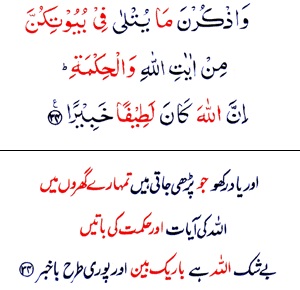 وَاذْكُرْنَ مَا يُتْلٰى فِيْ بُيُوْتِكُنَّ
مِنْ اٰيٰتِ اللّٰهِ وَالْحِكْمَةِ ؕ
اِنَّ اللّٰهَ كَانَ لَطِيْفًا خَبِيْرًا ۧ ۳۴
اور یاد رکھو جو پڑھی جاتی ہیں تمہارے گھروں میں
اللہ کی آیات اور حکمت کی باتیں
بے شک اللہ ہے باریک بین اور پوری طرح باخبر ۳۴